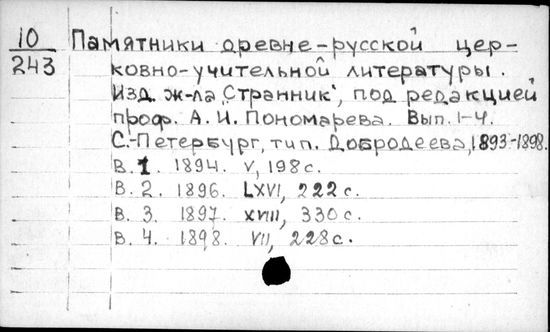 10
243
Памятники древне-русской цер-
ковно-учительной литературы.
Изд. ж-ла „Странник", под редакцией
проф. А. И. Пономарева. Вып. 1-4.
С.-Петербург, тип. Добродеева, 1893-1898.
В. 1. 1894. V, 198 с.
В. 2. 1896. LXVI, 222 с.
В. 3. 1897. XVIII, 330 с.
В. 4. 1898. VII, 228 с.